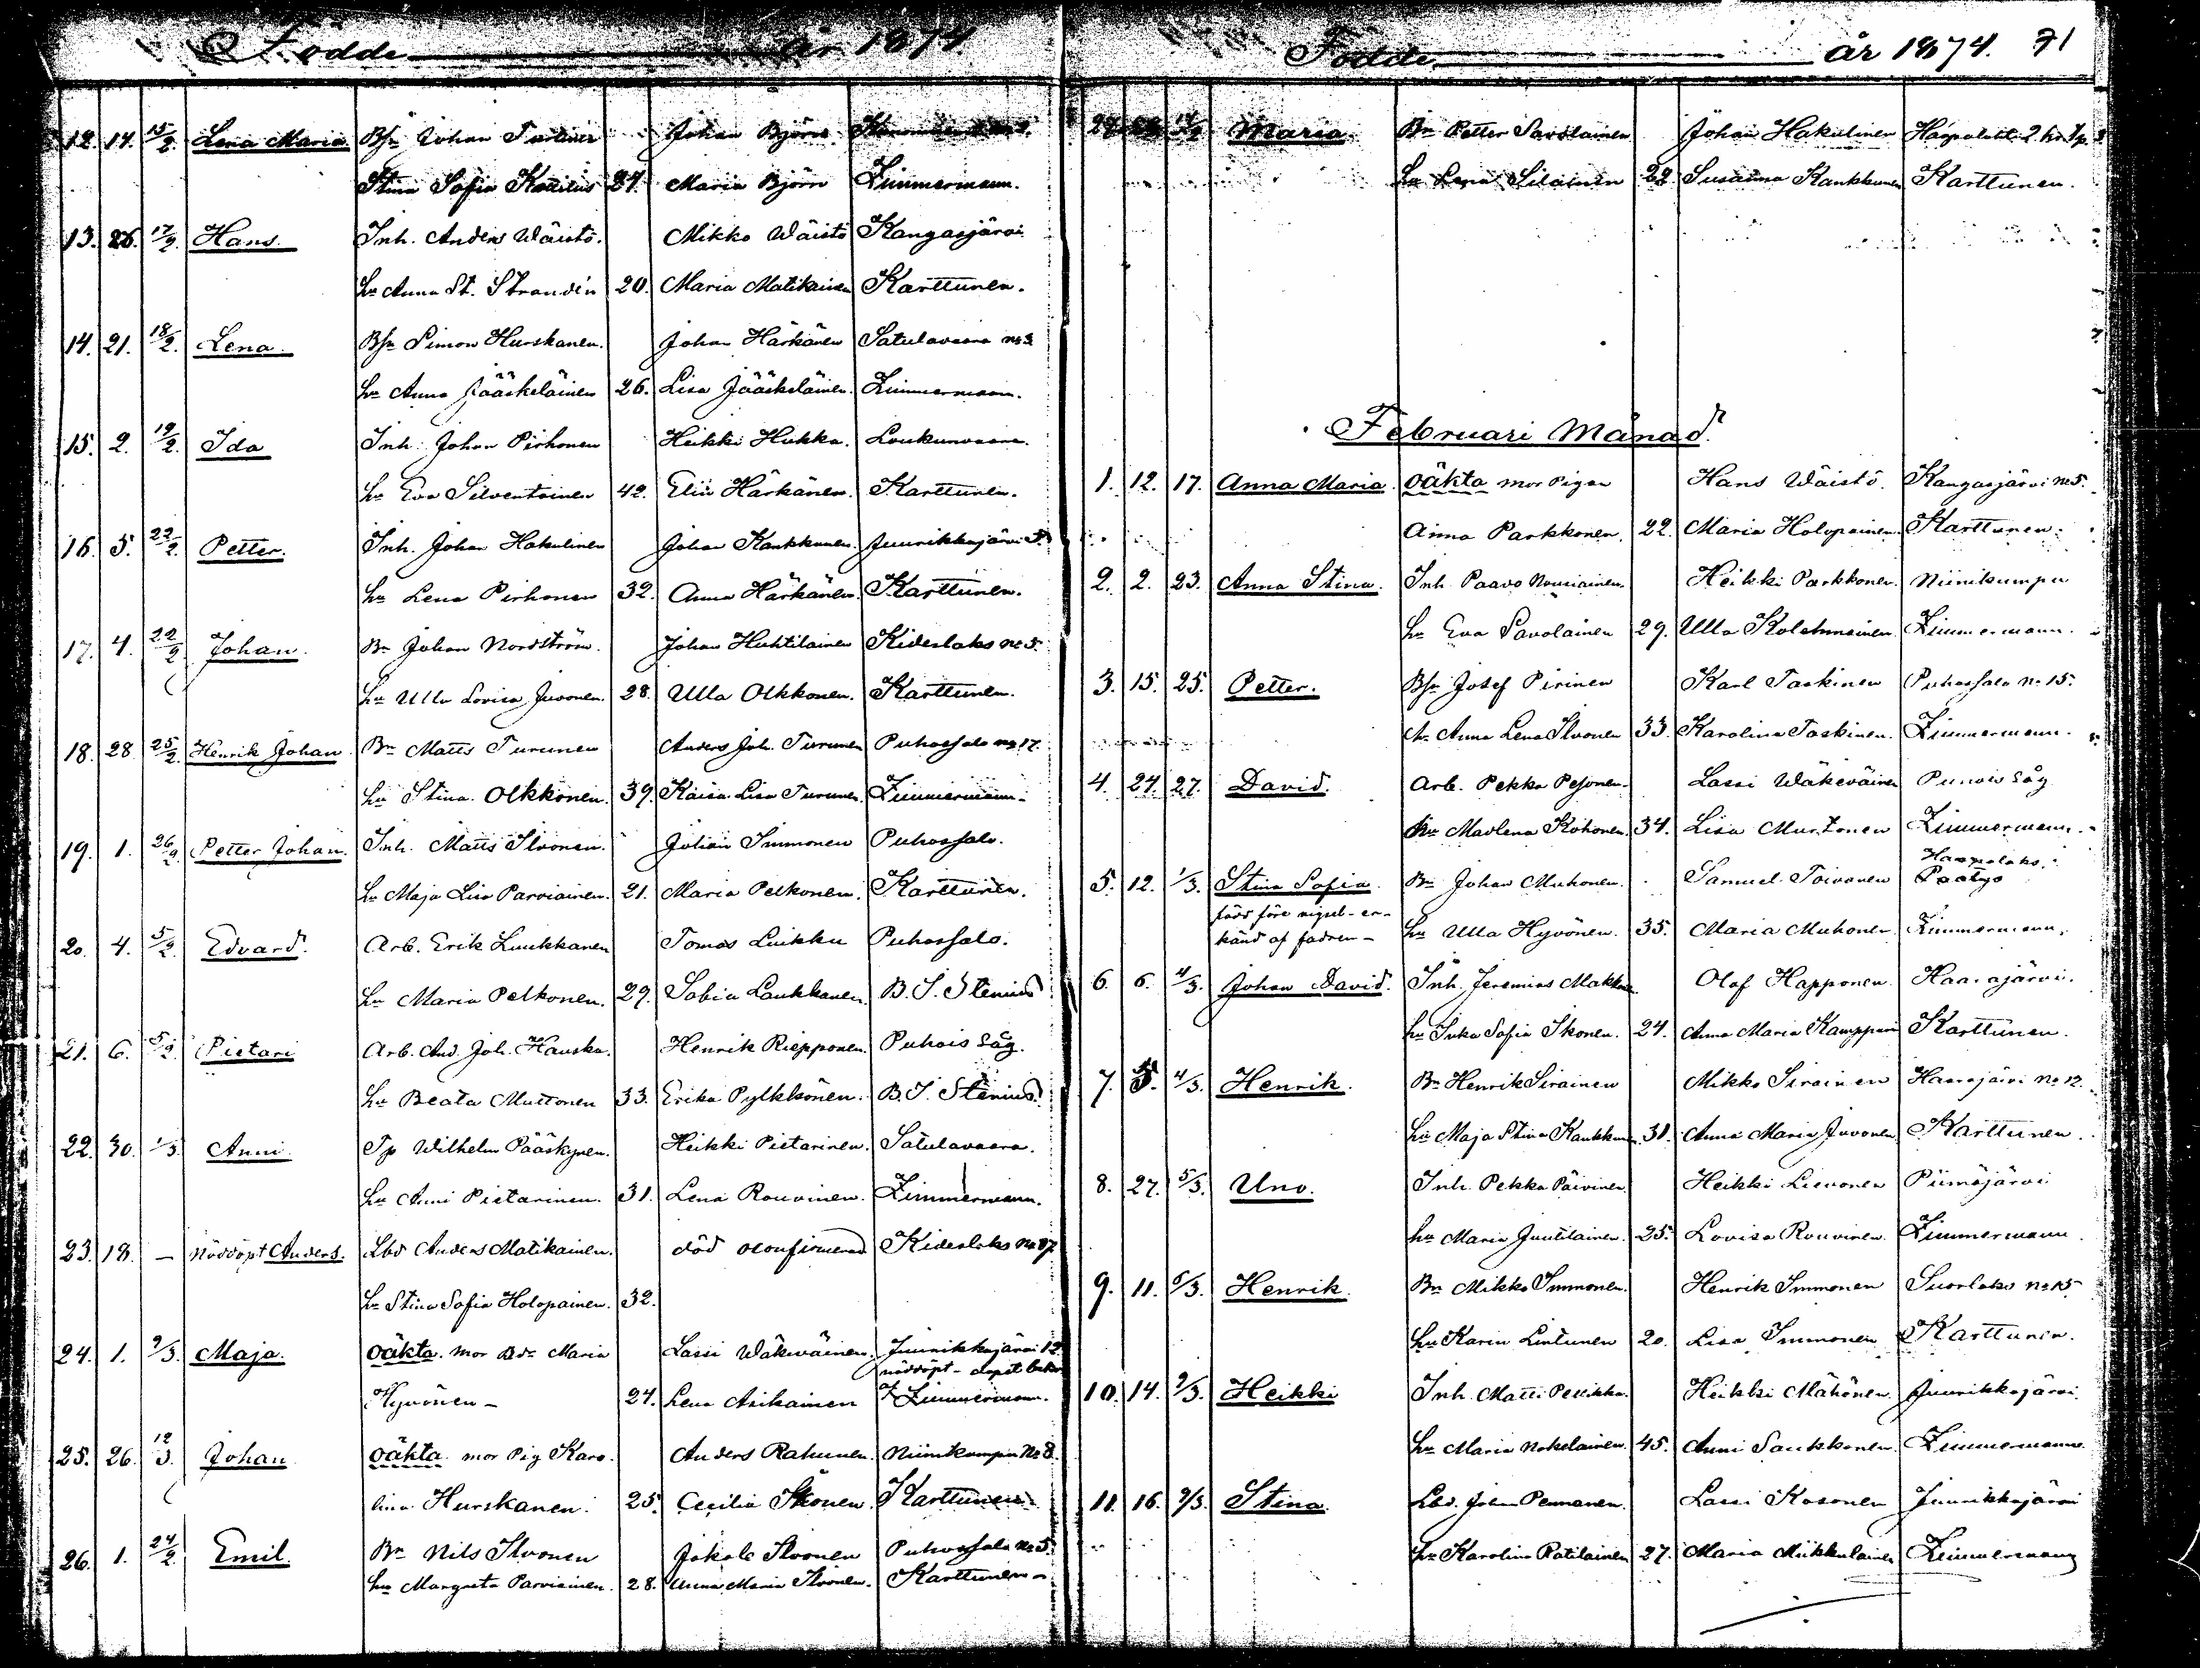 Födde år 1874
12. 14. 15/2. Lena Maria Bsn Johan Johan Björn
Stina Sofia 27. Maria Björn Zimmermann.
13. 26. 17/2. Hans. Inh. Anders Wäistö. Mikko Wäistö Kangasjärvi
hu Anna St. Strandén 20. Maria Matikainen Karttunen.
14. 21. 18/2. Lena. Bsn Simon Hurskanen. Johan Härkänen Satulavaara no 3
hu Anna Jääskeläinen 26. Lisa Jääskeläinen. Zimmermann.
15. 2. 19/2. Ida Inh. Johan Pirhonen Heikki Hukka. Loukunvaara.
hu Eva Silventoinen 42. Elin Härkänen. Karttunen.
16. 5. 22/2. Petter. Inh. Johan Hakulinen Johan Kankkunen. Juurikkajärvi 5.
hu Lena Pirhonen 32. Anna Härkänen. Karttunen.
17. 4. 22/2 Johan. Bn Johan Nordström. Johan Huhtilainen Kideslaks no 5.
hu Ulla Lovisa Juvonen. 28. Ulla Olkkonen. Karttunen.
18. 28 25/2. Henrik Johan Bn Matts Turunen Anders Joh. Turunen Puhossalo no 17.
hu Stina Olkkonen. 39. Kaisa Lisa Turunen Zimmermann.
19. 1. 26/2. Petter Johan. Inh. Matts Ilvonen. Johan Immonen Puhossalo.
hu Maja Lisa Parviainen. 21. Maria Pelkonen. Karttunen.
20. 4. 5/2. Edvard. Arb. Erik Luukkanen Tomas Luikku Puhossalo.
hu Maria Pelkonen. 29. Sabia Laukkanen B. J. Stenius
21. 6. 5/2. Pietari Arb. And. Joh. Hauska. Henrik Riepponen. Puhois såg.
hu Beata Muttonen 33. Erika Pylkkönen. B. J. Stenius.
22. 30. 1/3. Anni. Tp Wilhelm Pääskynen. Heikki Pietarinen. Satulavaara.
hu Anni Pietarinen. 31. Lena Rouvinen. Zimmermann.
23. 18. – nöddöpt Anders. Lbd Anders Matikainen. död oconfirmerad Kideslaks no 27
hu Stina Sofia Holopainen. 32.
24. 1. 9/3. Maja. oäkta. mor Maria Lassi Wäkeväinen. Juurikkajärvi 12
nöddöpt – dopet
Hyvönen – 24. Lena Asikainen Zimmermann.
25. 26. 12/3. Johan oäkta mor Pig Karo- Anders Rahunen. Niinikumpu No 8.
lina Hurskanen. 25. Cecilia Ikonen. Karttunen.
26. 1. 24/2. Emil. Bn Nils Ilvonen Jakob Ilvonen Puhossalo No 5.
hu Margreta Parviainen. 28. Anna Maria Ilvonen. Karttunen –
Födde år 1874. 71
27. Maria. Bn Petter Savolainen Johan Hakulinen
hu Lena Silainen 22 Susanna Kankkunen Karttunen.
Februari Månad.
1. 12. 17. Anna Maria. oäkta mor Pigan Hans Wäistö. Kangasjärvi no 5.
Anna Parkkonen. 22. Maria Holopainen. Karttunen.
2. 2. 23. Anna Stina. Inh. Paavo Nousiainen. Heikki Parkkonen. Niinikumpu
hu Eva Savolainen 29. Ulla Kolehmainen. Zimmermann.
3. 15. 25. Petter. Bsn Josef Pirinen Karl Taskinen Puhossalo no 15.
hu Anna Lena Ilvonen 33. Karolina Taskinen. Zimmermann.
4. 24. 27. David. Arb. Pekka Pesonen. Lassi Wäkeväinen Puhois såg
hu Madlena Kohonen 34. Lisa Murtonen Zimmermann.
5. 12. 1/3. Stina Sofia. Bn Johan Muhonen. Samuel Toivanen Haapolaks. Paatyo
född före vigsel – er-
känd af fadren – hu Ulla Hyvönen. 35. Maria Muhonen Zimmermann.
6. 6. 4/3. Johan David. Inh. Jeremias Makkonen Olof Happonen Haarajärvi.
hu Inka Sofia Ikonen. 24. Anna Maria Kamppuri Karttunen.
7. 5. 4/3. Henrik. Bn Henrik Sirainen Mikko Sirainen Haarajärvi no 12.
hu Maja Stina Kankkunen 31. Anna Maria Juvonen Karttunen.
8. 27. 5/3. Uno. Inh. Pekka Päivinen Heikki Lievonen Piimäjärvi
hu Maria Juutilainen. 25. Lovisa Rouvinen. Zimmermann.
9. 11. 6/3. Henrik. Bn Mikko Immonen. Henrik Immonen Suorlaks no 15
hu Karin Lintunen 20. Lisa Immonen Karttunen.
10. 14. 9/3. Heikki Inh. Matti Pellikka. Heikki Mähönen. Juurikkajärvi.
hu Maria Nokelainen 45. Anni Saukkonen. Zimmermann
11. 16. 9/3. Stina. Lbd. Johan Pennanen. Lassi Kosonen Juurikkajärvi
hu Karolina Ratilainen 27. Maria Mikkulainen Zimmermann